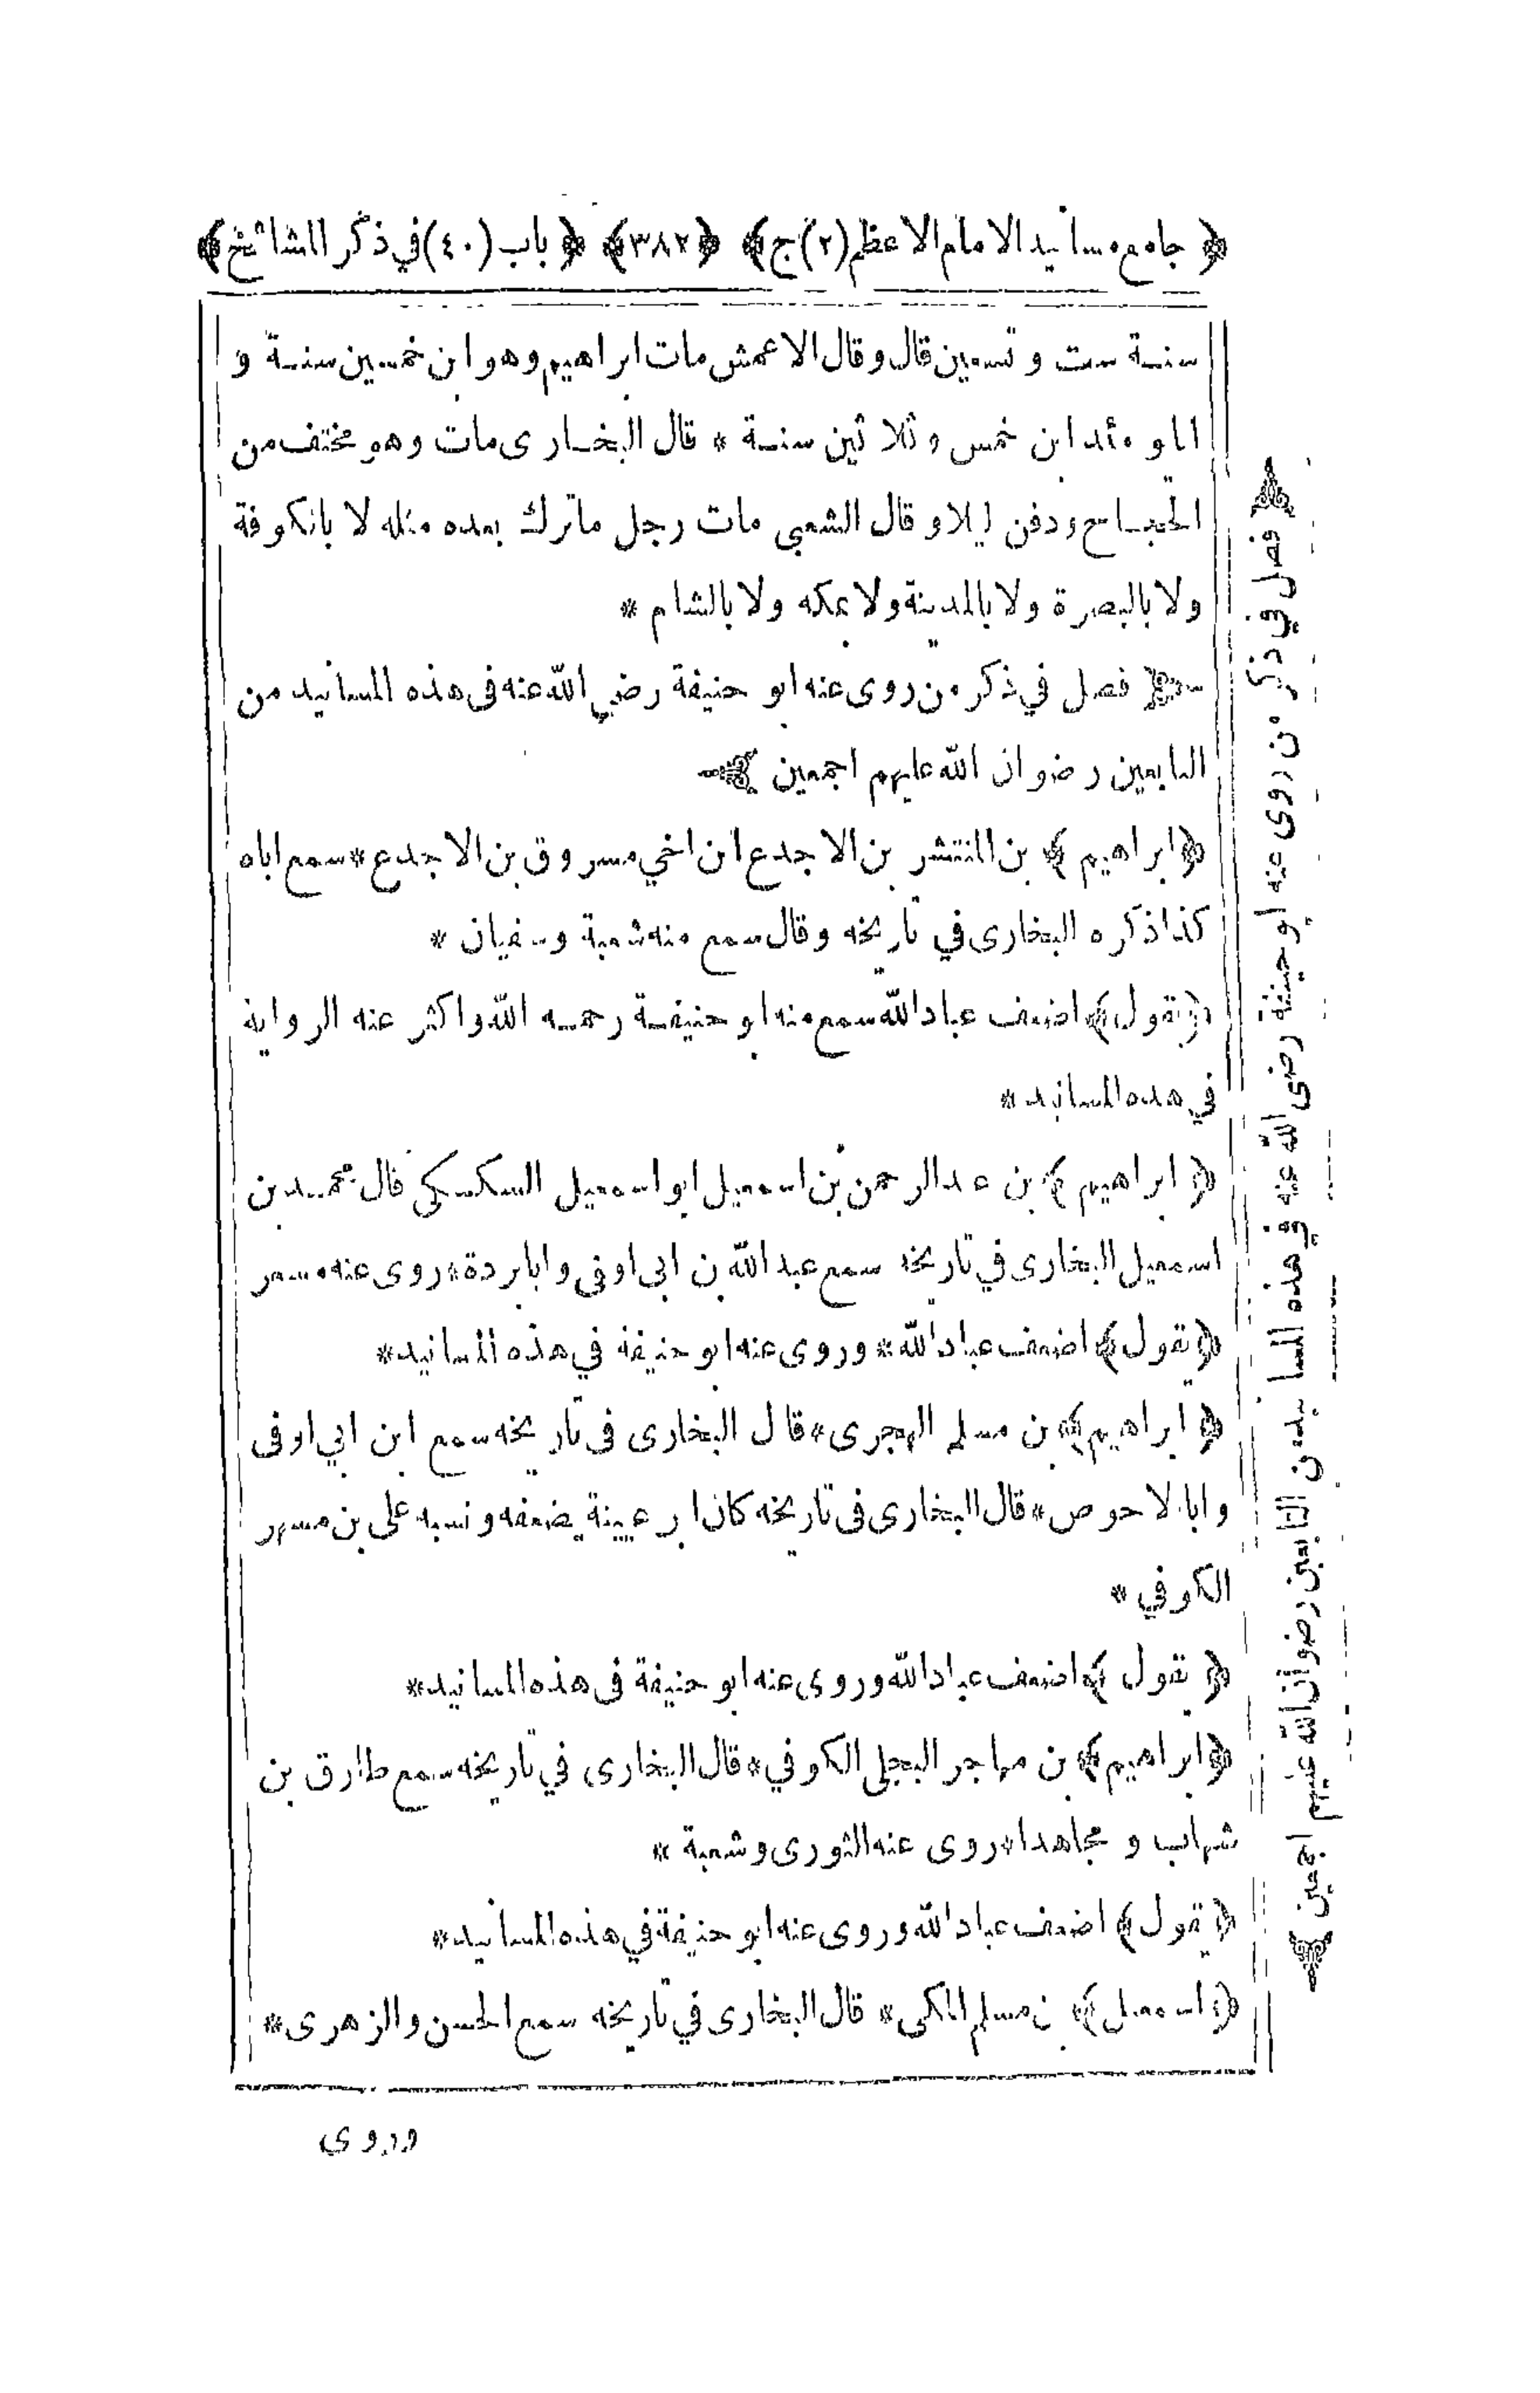 ﴿ جامع مسانيد الامام الاعظم (٢) ج﴾ ﴿٣٨٢﴾ ﴿ باب (٤٠) في ذكر المشائخ﴾
سنــة ست و تسعين قال وقال الاعمش مات ابراهيم وهو ابن خمسين سنــة و
انا يومئذ ابن خمس و ثلاثين سنــة * قال البخــارى مات وهو مختف من
الحجــاج ودفن ليلا و قال الشعبى مات رجل ماترك بعده مثله لا بالكوفة
ولا بالبصرة ولا بالمدينة ولا بمكه ولا بالشام *
﴿ فصل في ذكر من روى عنه ابو حنيفة رضي الله عنه فى هذه المسانيد من
التابعين رضوان الله عليهم اجمعين ﴾
﴿ابراهيم ﴾ بن المنتشر بن الاجدع ابن اخي مسروق بن الاجدع * سمع اباه
كذا ذكره البخارى في تاريخه وقال سمع منه شعبة وسفيان *
﴿يقول﴾ اضعف عباد الله سمع منه ابو حنيفــة رحمــه الله واكثر عنه الرواية
في هذه المسانيد *
﴿ ابراهيم ﴾ بن عبد الرحمن بن اسمعيل ابو اسمعيل السكسكى قال محمــد بن
اسمعيل البخارى في تاريخه سمع عبد الله بن ابى اوفى و ابا بردة * روى عنه مسعر
﴿يقول﴾ اضعف عباد الله * وروى عنه ابو حنيفة في هذه المسانيد *
﴿ ابراهيم﴾ بن مسلم الهجرى * قال البخارى فى تاريخه سمع ابن ابي اوفى
وابا الاحوص * قال البخارى فى تاريخه كان ابن عيينة يضعفه ونسبه على بن مسهر
الكوفي *
﴿ يقول ﴾ اضعف عباد الله وروى عنه ابو حنيفة فى هذه المسانيد *
﴿ابراهيم﴾ بن مهاجر البجلى الكوفي * قال البخارى في تاريخه سمع طارق بن
شهاب و مجاهدا * روى عنه الثورى وشعبة *
﴿يقول﴾ اضعف عباد الله وروى عنه ابو حنيفة في هذه المسانيد *
﴿اسمعيل﴾ بن مسلم المكى * قال البخارى في تاريخه سمع الحسن والزهرى *
وروى
فصل في ذكر من روى عنه ابو حنيفة رضى الله عنه في هذه المسانيد من التابعين رضوان الله عليهم اجمعين